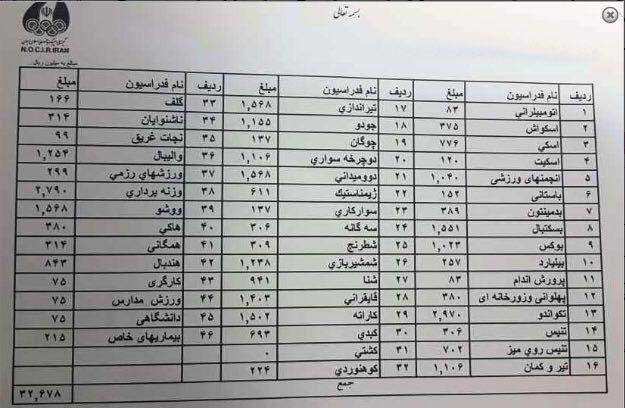 بسمه تعالی
N.O.C.I.R.IRAN
مبلغ به میلیون ریال...
ردیف نام فدراسیون مبلغ ردیف نام فدراسیون مبلغ ردیف نام فدراسیون مبلغ
۱ اتومبیلرانی ۸۳ ۱۷ تیراندازی ۱,۵۶۸ ۳۳ گلف ۱۶۶
۲ اسکواش ۳۷۵ ۱۸ جودو ۱,۱۵۵ ۳۴ ناشنوایان ۳۱۴
۳ اسکی ۷۷۶ ۱۹ چوگان ۱۳۷ ۳۵ نجات غریق ۹۹
۴ اسکیت ۱۲۰ ۲۰ دوچرخه سواری ۱,۱۰۶ ۳۶ والیبال ۱,۲۵۴
۵ انجمنهای ورزشی ۱,۰۴۰ ۲۱ دوومیدانی ۱,۵۶۸ ۳۷ ورزشهای رزمی ۲۹۹
۶ باستانی ۱۵۲ ۲۲ ژیمناستیک ۶۱۱ ۳۸ وزنه برداری ۲,۷۹۰
۷ بدمینتون ۳۸۹ ۲۳ سوارکاری ۱۳۷ ۳۹ ووشو ۱,۵۶۸
۸ بسکتبال ۱,۵۵۱ ۲۴ سه گانه ۳۰۶ ۴۰ هاکی ۳۸۰
۹ بوکس ۱,۰۲۳ ۲۵ شطرنج ۳۰۹ ۴۱ همگانی ۳۱۴
۱۰ بیلیارد ۲۵۷ ۲۶ شمشیربازی ۱,۲۳۸ ۴۲ هندبال ۸۴۳
۱۱ پرورش اندام ۸۳ ۲۷ شنا ۹۴۱ ۴۳ کارگری ۷۵
۱۲ پهلوانی وزورخانه ای ۳۸۰ ۲۸ قایقرانی ۱,۴۰۳ ۴۴ ورزش مدارس ۷۵
۱۳ تکواندو ۲,۹۷۰ ۲۹ کاراته ۱,۵۰۲ ۴۵ دانشگاهی ۷۵
۱۴ تنیس ۳۰۶ ۳۰ کبدی ۶۹۳ ۴۶ بیماریهای خاص ۲۱۵
۱۵ تنیس روی میز ۷۰۲ ۳۱ کشتی ۰
۱۶ تیر و کمان ۱,۱۰۶ ۳۲ کوهنوردی ۲۲۴
جمع ۳۲,۶۷۸